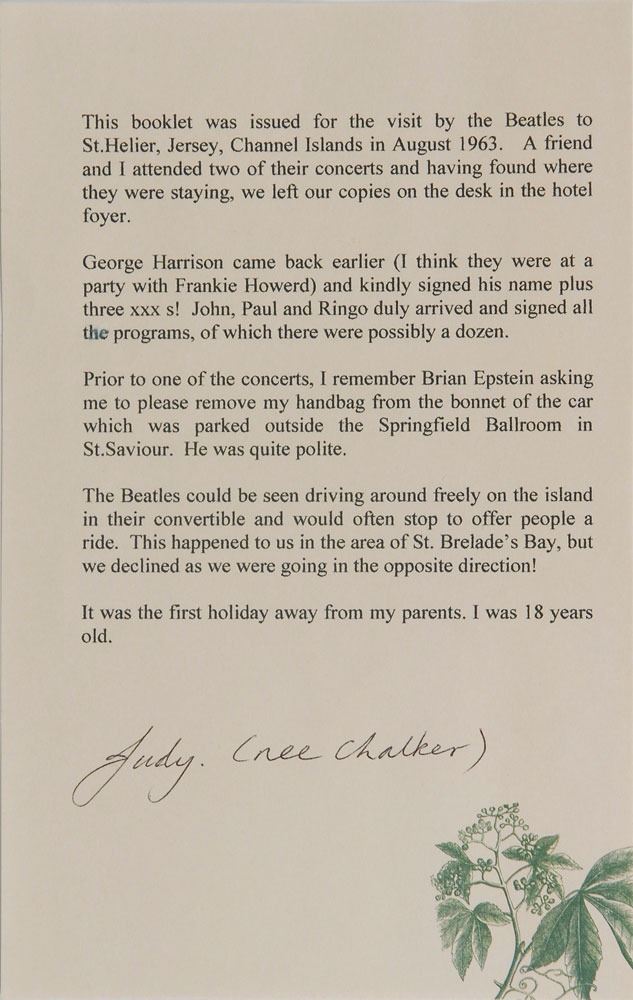 This booklet was issued for the visit by the Beatles to
St.Helier, Jersey, Channel Islands in August 1963. A friend
and I attended two of their concerts and having found where
they were staying, we left our copies on the desk in the hotel
foyer.
George Harrison came back earlier (I think they were at a
party with Frankie Howerd) and kindly signed his name plus
three xxx s! John, Paul and Ringo duly arrived and signed all
the programs, of which there were possibly a dozen.
Prior to one of the concerts, I remember Brian Epstein asking
me to please remove my handbag from the bonnet of the car
which was parked outside the Springfield Ballroom in
St.Saviour. He was quite polite.
The Beatles could be seen driving around freely on the island
in their convertible and would often stop to offer people a
ride. This happened to us in the area of St. Brelade's Bay, but
we declined as we were going in the opposite direction!
It was the first holiday away from my parents. I was 18 years
old.
Judy. (nee Chalker)